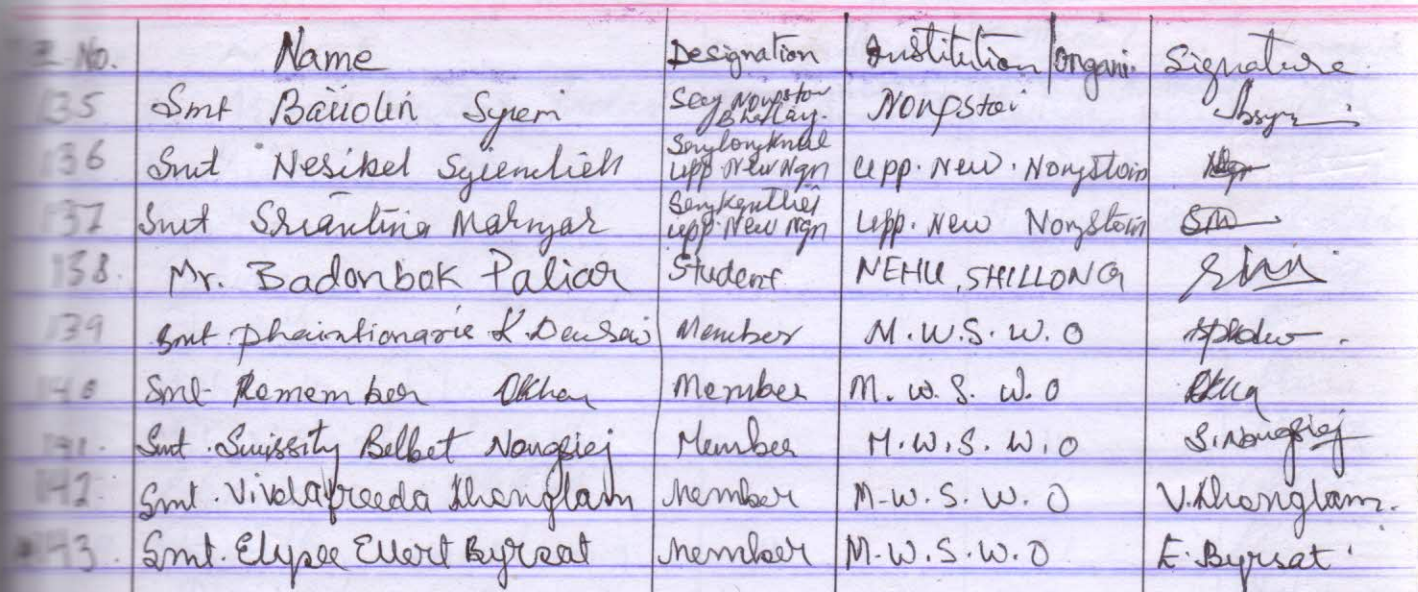 No. Name Designation Institution/organi. Signature
135 Smt Baiiolin Syiem Secy Nongstoin Nongstoi
136 Smt Nesibel Syiemlieh Upp. New Ngn Upp. New. Nongstoin
137 Smt Sriantina Marngar Upp. New Ngn Upp. New Nongstoin
138. Mr. Badonbok Paliar Student NEHU, SHILLONG
139 Smt. Phaintionarie K. Dewsai Member M.W.S.W.O
140 Smt. Remember Member M. W. S. W. O
141. Smt. Swissity Belbet Nongsiej Member M.W.S.W.O S. Nongsiej
142. Smt. Vivdafreeda Khonglam Member M-W.S.W.O V. Khonglam.
143. Smt. Elysee Ellert Byrsat Member M-W.S.W.O E. Byrsat